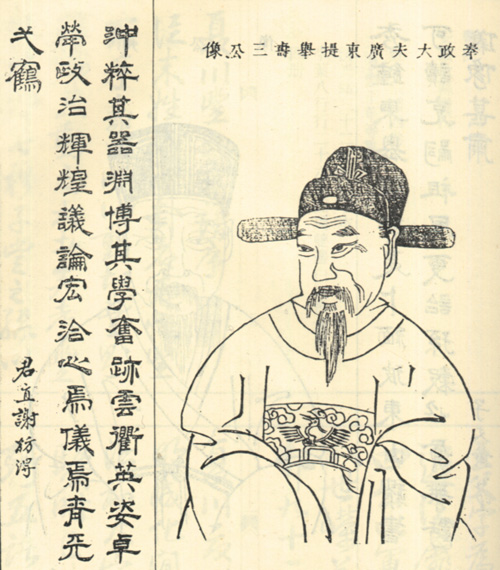 奉政大夫廣東提舉三公像
沖粹其器淵博其學奮跡雲衢英姿卓
犖政治輝煌議論宏洽心焉儀焉青天
弌鶴
君直謝枋得